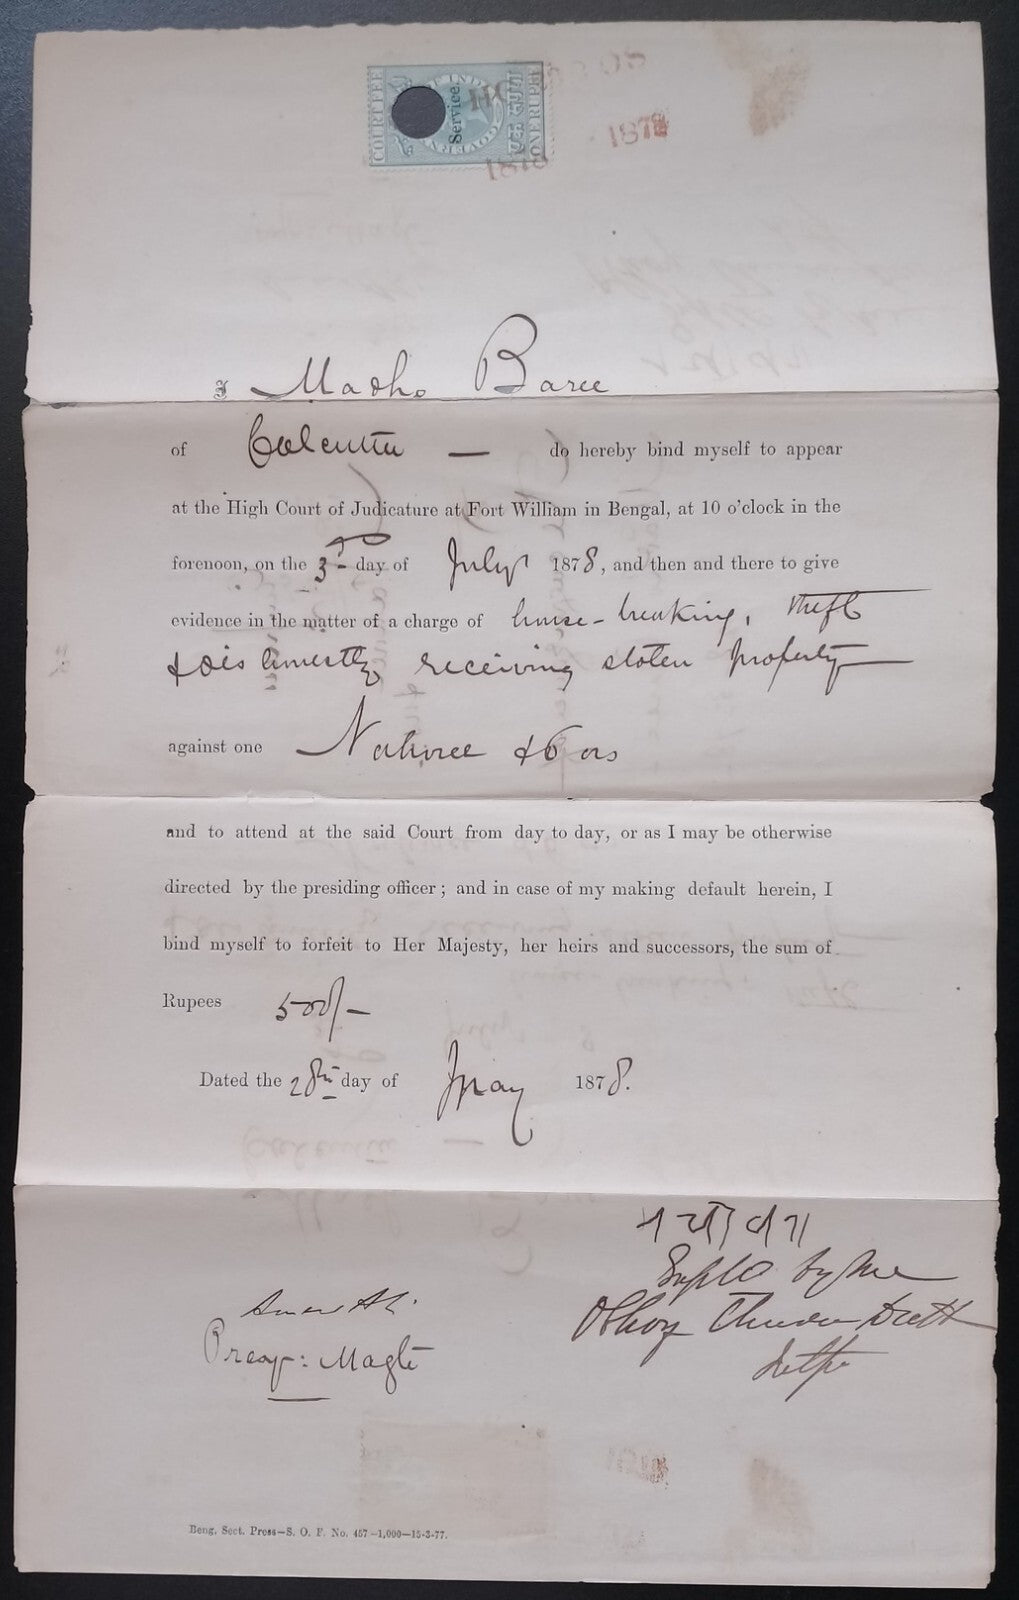 COURT FEE
Service.
एक रुपया
ONE RUPEE
1878
I Madho Baree
of Calcutta — do hereby bind myself to appear
at the High Court of Judicature at Fort William in Bengal, at 10 o'clock in the
forenoon, on the 3rd day of July 1878, and then and there to give
evidence in the matter of a charge of house-breaking, theft
& dishonestly receiving stolen property
against one & 6 ors
and to attend at the said Court from day to day, or as I may be otherwise
directed by the presiding officer; and in case of my making default herein, I
bind myself to forfeit to Her Majesty, her heirs and successors, the sum of
Rupees 500/-
Dated the 28th day of May 1878.
by me
Magte
Beng. Sect. Press—S. O. F. No. 457—1,000—15-3-77.